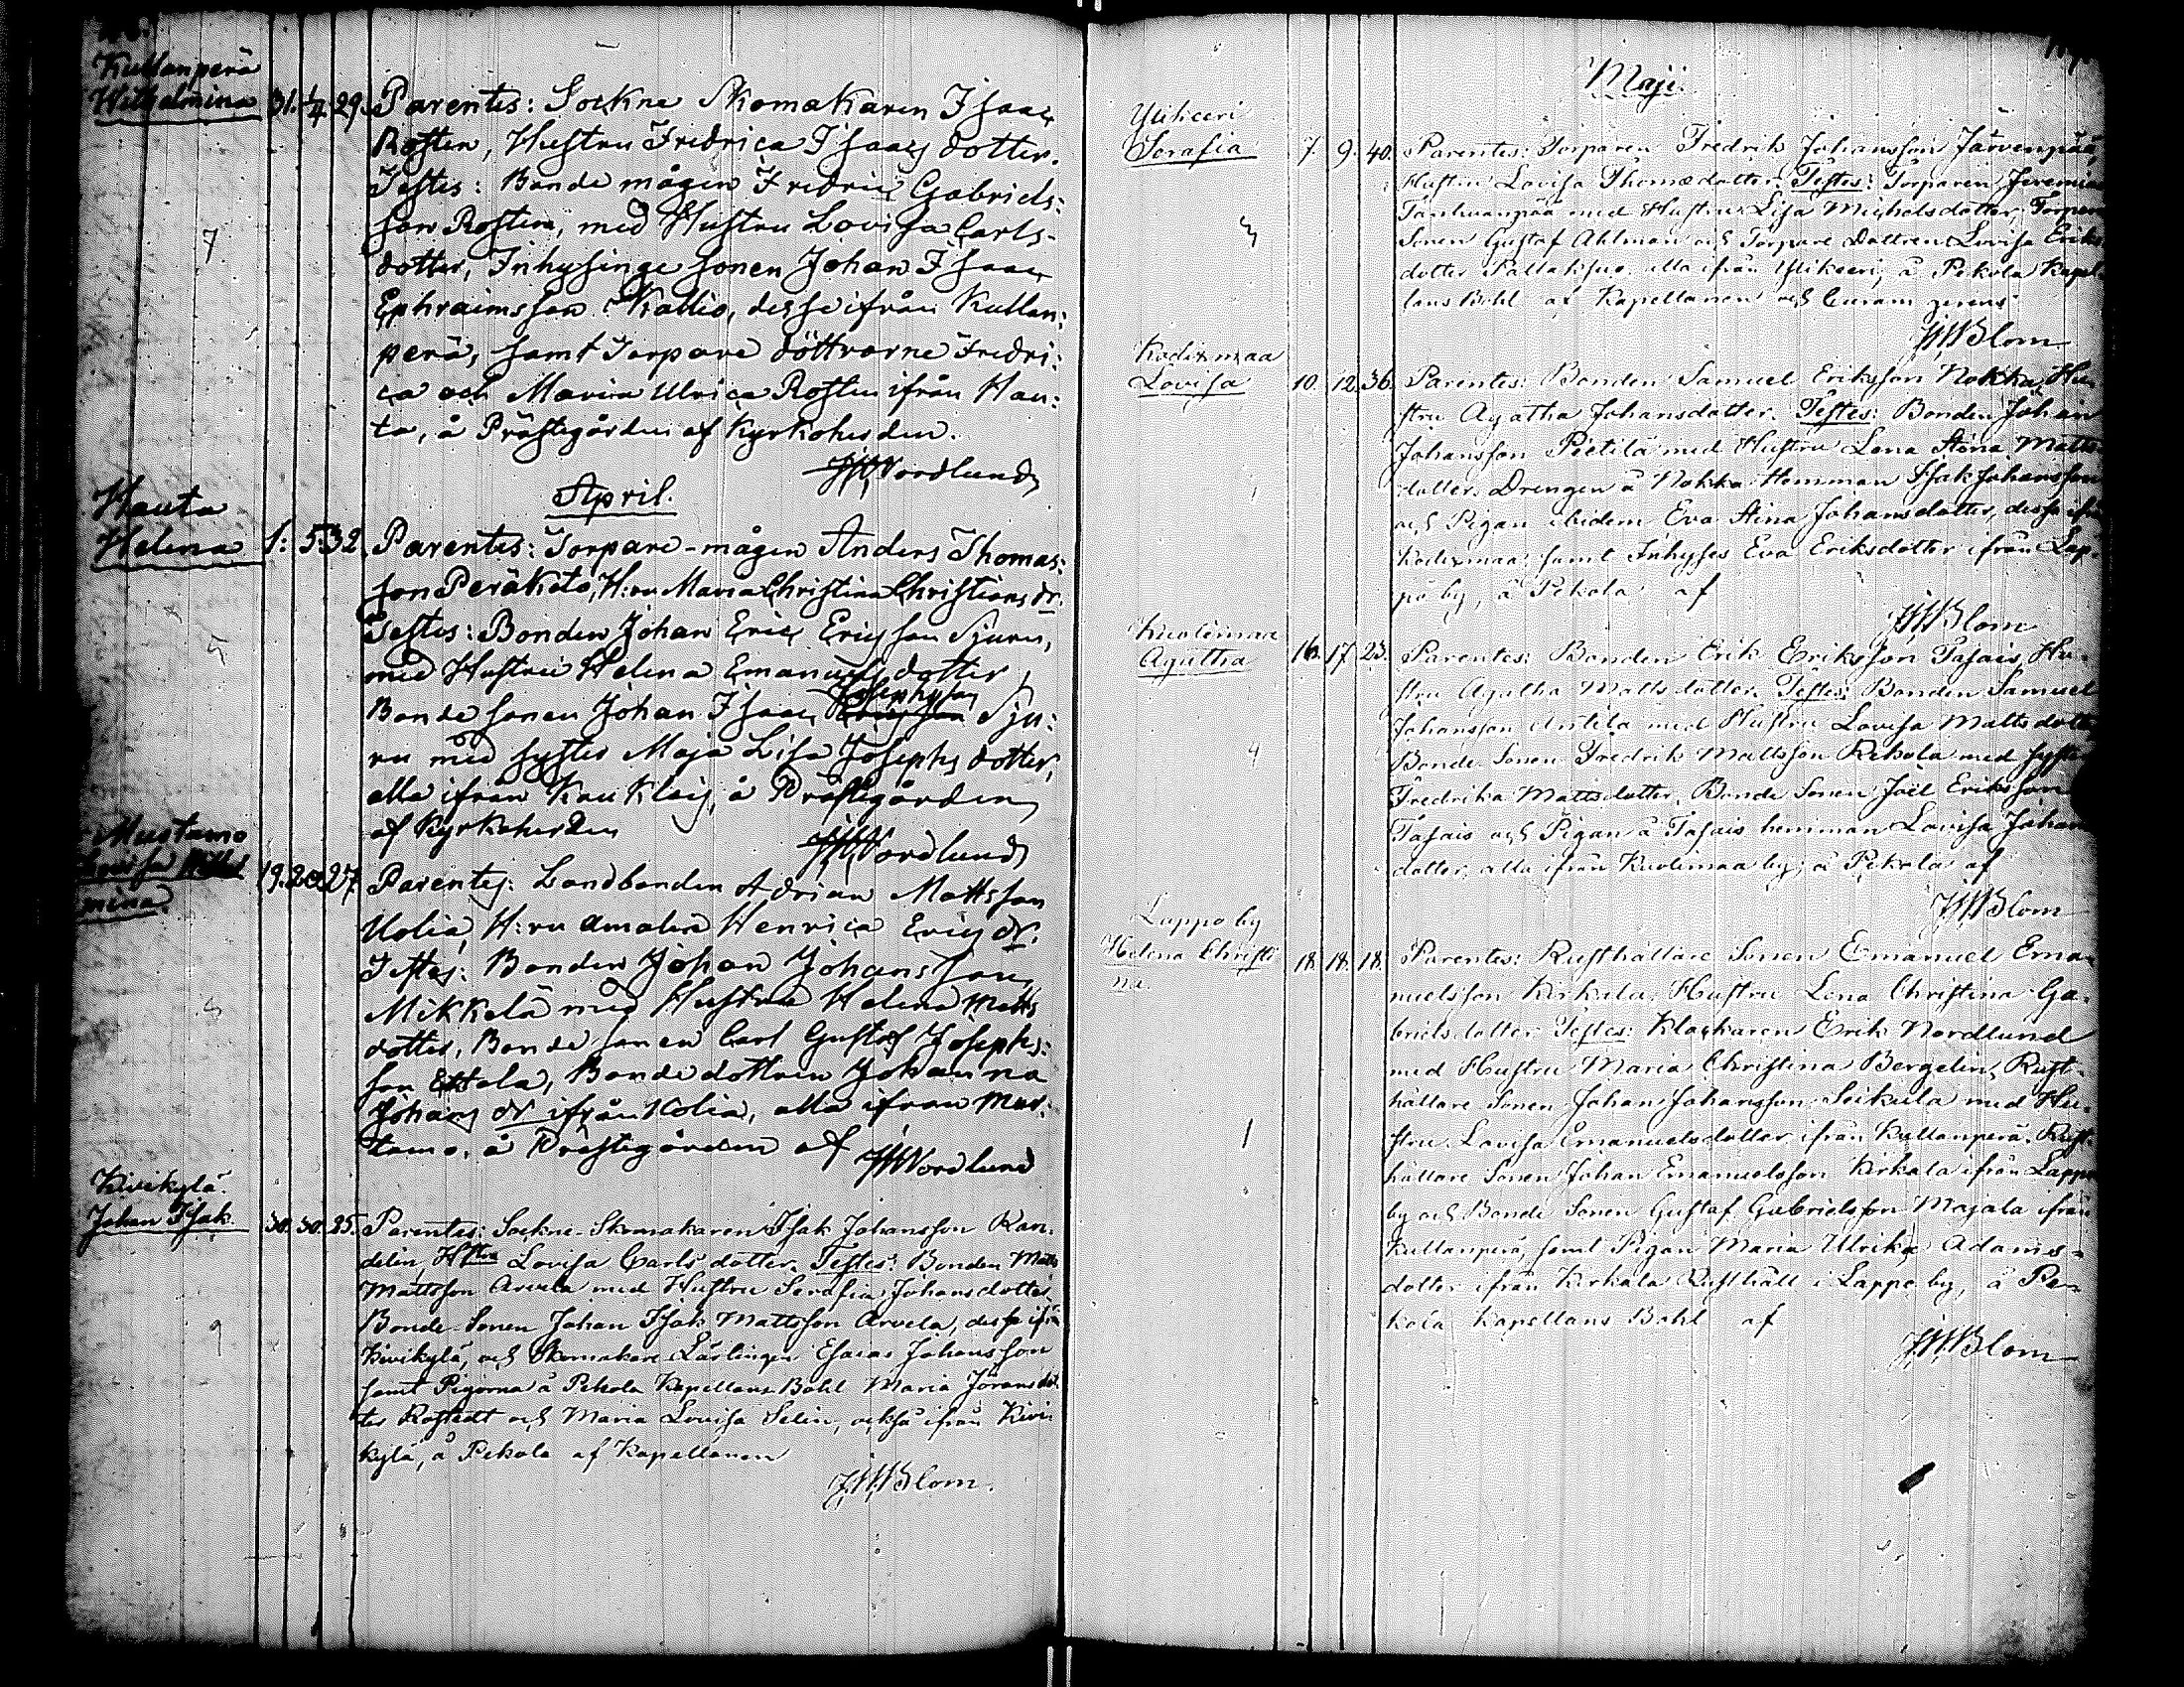 Kullanperä
Wilhelmina 31. 1/4 29. Parentes: Sockne Skomakaren Isaac
Rosten, Hustru Fredrica Isaacs dotter.
Testes: Bonde mågen Fredric Gabriels:
son Rosten, med Hustru Lovisa Carls-
dotter, Inhysinge sonen Johan Isaac
Ephraimsson Kallio, desse ifrån Kullan:
perä, samt Torpare döttrarne Fredri:
ca och Maria Ulrica Rosten ifrån Hau:
ta, å Prästegården af Kyrkoherden.
Nordlund
7
April.
Hauta
Helena 1. 5. 32. Parentes: Torpare-mågen Anders Thomas:
son Peräkoto, H:ru Maria Christina Christians dr.
Testes: Bonden Johan Eric Ericsson Sjuru,
med Hustru Helena Emanuels dotter,
Josephsson
Bonde sonen Johan Isaac Ericsson Sju:
ru med syster Maja Lisa Josephs dotter,
alla ifrån Kauklais, å Prästegården
af Kyrkoherden
Nordlund
Mustamo
Lovisa Wilhel
mina. 19. 20. 27. Parentes: Landbonden Adrian Mattsson
Uolia, H:ru Amalia Henrica Erics dr.
Testes: Bonden Johan Johansson
Mikkelä med Hustru Helena Matts
dotter, Bonde sonen Carl Gustaf Josephs:
son Ettala, Bonde dottren Johanna
Johans dr ifrån Uolia, alla ifrån Mus:
tamo, å Prästegården af
Nordlund
Kivikylä.
Johan Isak. 30. 30. 25. Parentes: Sockne-Skomakaren Isak Johansson Ran-
delin, Hstru Lovisa Carls dotter. Testes: Bonden Matts
Mattsson Arvela med Hustru Serafia Johansdotter,
Bonde-Sonen Johan Isak Mattsson Arvela, desse ifrån
Kivikylä, och Skomakare-Lärlingen Esaias Johansson
samt Pigorna å Pekola Kapellans Bohl Maria Jöransdot-
ter Rostedt och Maria Lovisa Selin, också ifrån Kivi-
kylä, å Pekola af Kapellanen
9
Blom.
Maji.
Ylikeeri
Serafia 7. 9. 40. Parentes: Torparen Fredrik Johansson Järvenpää,
Hustru Lovisa Thomædotter. Testes: Torparen Jeremias
Tanhuanpää med Hustru Lisa Michelsdotter, Torpare
Sonen Gustaf Ahlman och Torpare Dottren Lovisa Eriks
dotter Sallaksuo, alla ifrån Ylikeeri, å Pekola Kapel-
lans Bohl af Kapellanen och Curam gerens
3
Blom
Kodixmaa
Lovisa 10. 12. 36. Parentes: Bonden Samuel Eriksson Nokka, Hu-
stru Agatha Johansdotter. Testes: Bonden Johan
Johansson Pietilä med Hustru Lena Stina Matts-
dotter, Drengen å Nokka Hemman Isak Johansson
och Pigan ibidem Eva Stina Johansdotter, desse ifrån
Kodixmaa, samt Inhyses Eva Eriksdotter ifrån Lap-
po by, å Pekola af
Blom
Kuolimaa
Agatha 16. 17. 23. Parentes: Bonden Erik Eriksson Tasais, Hu-
stru Agatha Mattsdotter. Testes: Bonden Samuel
Johansson Anttila med Hustru Lovisa Mattsdotter,
Bonde-Sonen Fredrik Mattsson Rekola med syster
Fredrika Mattsdotter, Bonde Sonen Joel Eriksson
Tasais och Pigan å Tasais hemman Lovisa Johans
dotter, alla ifrån Kuolimaa by, å Pekola af
4
Blom
Lappo by
Helena Christi
na. 18. 18. 18. Parentes: Rusthållare Sonen Emanuel Ema-
nuelsson Kirkala, Hustru Lena Christina Ga-
briels dotter. Testes: Klockaren Erik Nordlund
med Hustru Maria Christina Bergelin, Rust-
hållare Sonen Johan Johansson Seikula med Hu-
stru Lovisa Emanuelsdotter ifrån Kullanperä, Rust-
hållare Sonen Johan Emanuelsson Kirkala ifrån Lappo
by och Bonde Sonen Gustaf Gabrielsson Majala ifrån
Kullanperä, samt Pigan Maria Ulrika Adams-
dotter ifrån Kirkala Rusthåll i Lappo by, å Pe-
kola Kapellans Bohl af
1
Blom